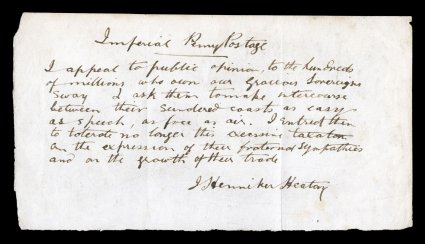 Imperial Penny Postage
I appeal to public opinion, to the hundreds
of millions who own our Gracious Sovereigns
Sway. I ask them to make intercourse
between their sundered coasts as easy
as speech, as free as air. I entreat them
to tolerate no longer this excessive taxation
on the expression of their fraternal sympathies
and on the growth of their trade
J Henniker Heaton